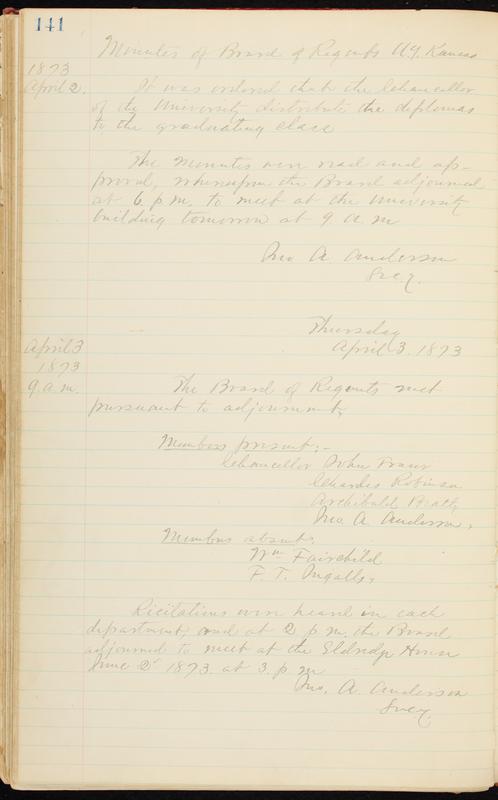 141
Minutes of Board of Regents U. of Kansas
1873
April 2. It was ordered that the Chancellor
of the University distribute the diplomas
to the graduating class
The Minutes were read and ap-
proved, whereupon the Board adjourned
at 6 p. m. to meet at the University
building tomorrow at 9 a m
Jno A Anderson
Secy.
Thursday
April 3, 1873
April 3
1873
9 a. m. The Board of Regents met
pursuant to adjournment,
Members present:-
Chancellor John Fraser
Charles Robinson
Archibald Beatty
Jno A. Anderson,
Members absent,
Wm Fairchild
F. T. Ingalls,
Recitations were heard in each
department, and at 2 p m. the Board
adjourned to meet at the Eldridge House
June 2d 1873. at 3. p m
Jno. A. Anderson
Secy.